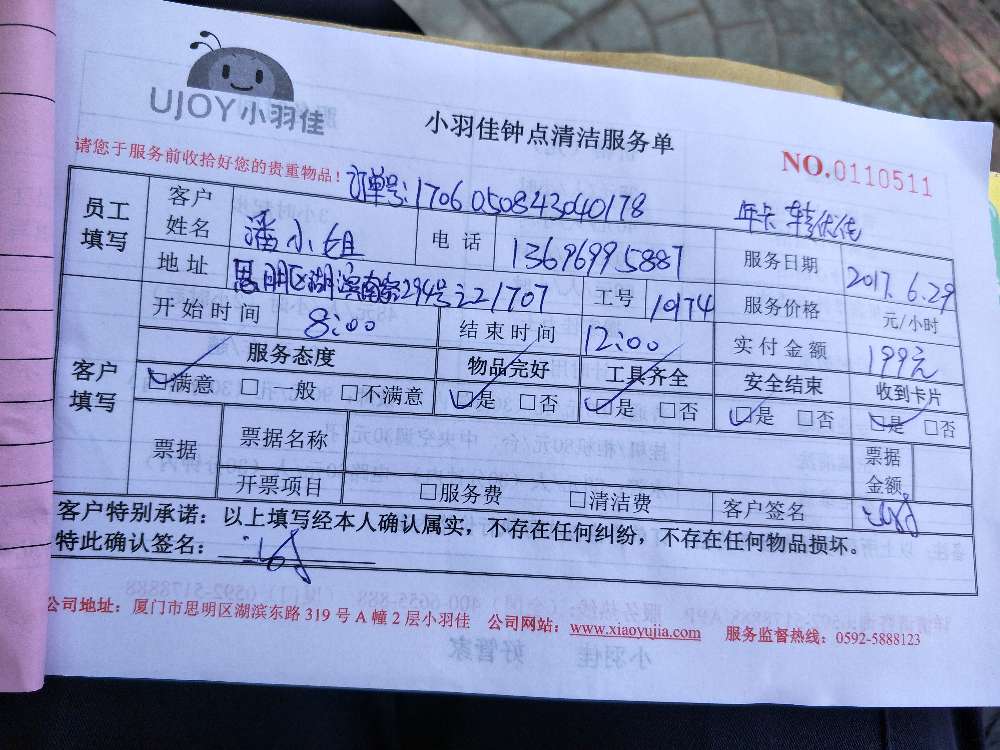 UJOY小羽佳
小羽佳钟点清洁服务单
NO.0110511
请您于服务前收拾好您的贵重物品!
订单号:1706050843040178
年卡
员工填写
客户姓名 潘小姐 电话 13696995887 服务日期 2017.6.29
地址 思明区湖滨南路294号之2 1707 工号 10174 服务价格 元/小时
开始时间 8:00 结束时间 12:00 实付金额 199元
客户填写
服务态度 物品完好 工具齐全 安全结束 收到卡片
□满意 □一般 □不满意 □是 □否 □是 □否 □是 □否 □是 □否
票据 票据名称 票据金额
开票项目 □服务费 □清洁费 客户签名
客户特别承诺:以上填写经本人确认属实,不存在任何纠纷,不存在任何物品损坏。
特此确认签名:
公司地址:厦门市思明区湖滨东路319号A幢2层小羽佳 公司网站:www.xiaoyujia.com 服务监督热线:0592-5888123